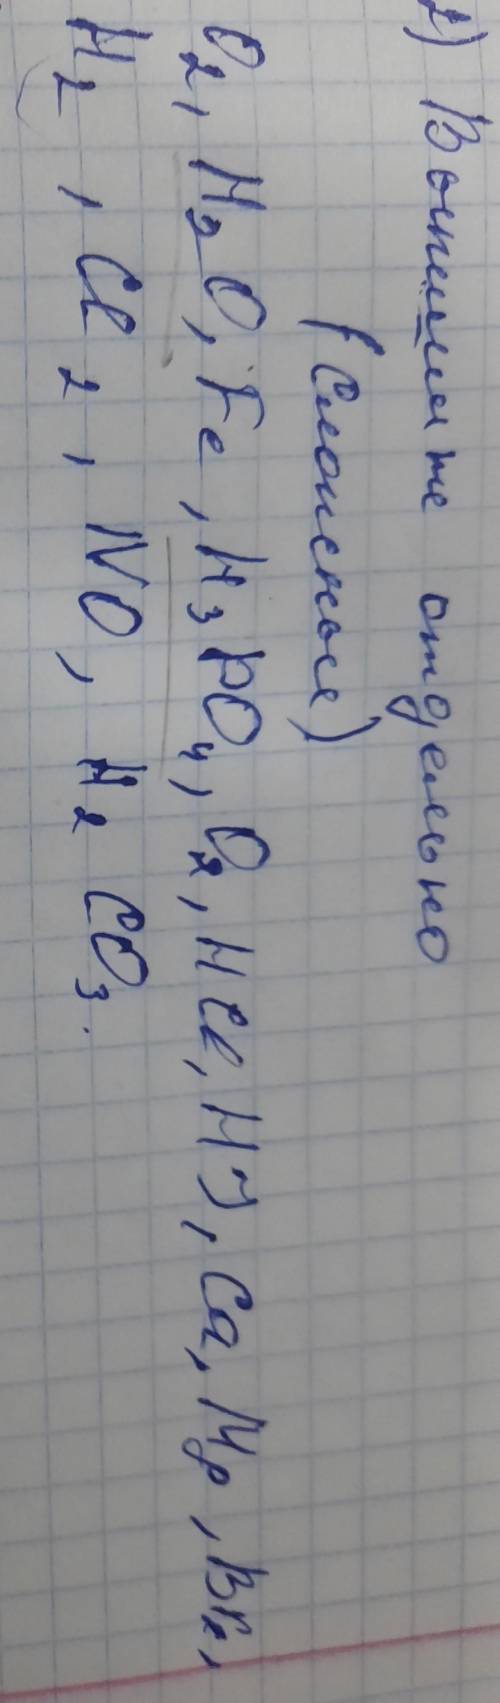 2) Выпишите отдельно
(Сложные)
O₂, H₂O, Fe, H₃PO₄, O₂, HCl, HJ, Ca, Mg, Br₂,
H₂, Cl₂, NO, H₂CO₃.